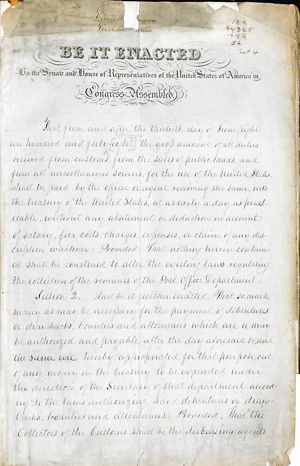 BE IT ENACTED
By the Senate and House of Representatives of the United States of America in
Congress Assembled,
That from and after the thirtieth day of June, eight-
een hundred and forty-eight, the gross amount of all duties
received from customs, from the sales of public lands, and
from all miscellaneous sources, for the use of the United States,
shall be paid by the officer or agent receiving the same, into
the treasury of the United States, at as early a day as practi-
cable, without any abatement or deduction on account
of salary, fees, costs, charges, expenses, or claim of any des-
cription whatever: Provided, That nothing herein contain-
ed shall be construed to alter the existing laws regulating
the collection of the revenues of the Post Office Department.
Section 2. And be it further enacted, That so much
money as may be necessary for the payment of debentures
or drawbacks, bounties and allowances which are or may
be authorized and payable after the day aforesaid be and
the same are hereby appropriated for that purpose out
of any money in the treasury to be expended under
the direction of the Secretary of that department accord-
ing to the laws authorizing said debentures or draw-
backs, bounties and allowances: Provided, That the
Collectors of the Customs shall be the disbursing agents